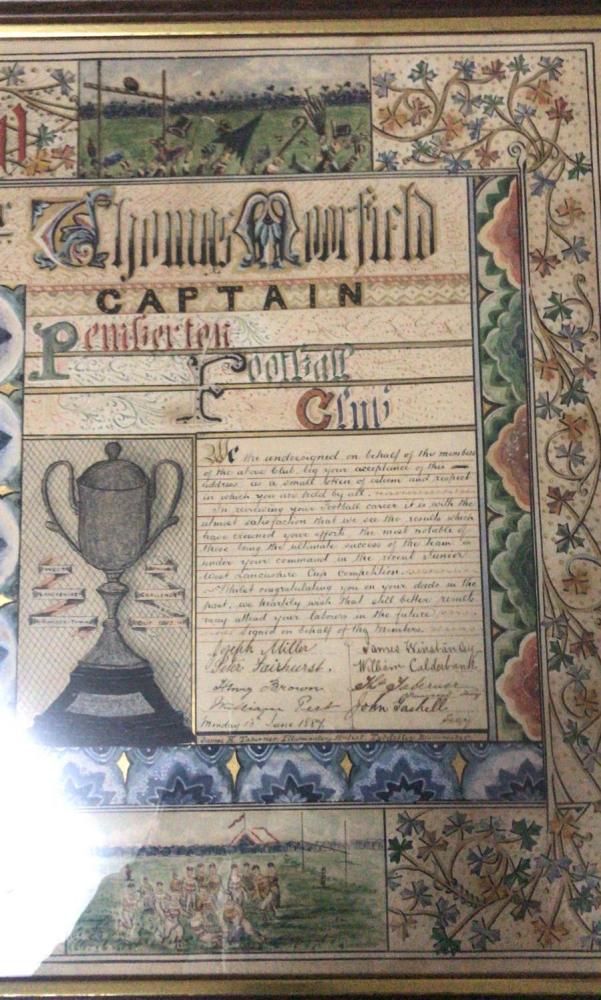 Thomas Moorfield
CAPTAIN
Pemberton
Football
Club
We the undersigned on behalf of the members
of the above Club, beg your acceptance of this
address as a small token of esteem and respect
in which you are held by all.
In reviewing your Football career it is with the
utmost satisfaction that we see the results which
have crowned your efforts the most notable of
these being the ultimate success of the team
under your command in the recent Junior
West Lancashire Cup Competition.
Whilst congratulating you on your deeds in the
past, we heartily wish that still better results
may attend your labours in the future,
Signed on behalf of the Members.
Joseph Miller
James Winstanley
Peter Fairhurst.
William Calderbank
Henry Brown
William Peet
John Gaskell
Monday 13th June 1887.
Secy
WEST
LANCASHIRE
CHALLENGE
CUP
Illuminating Artist